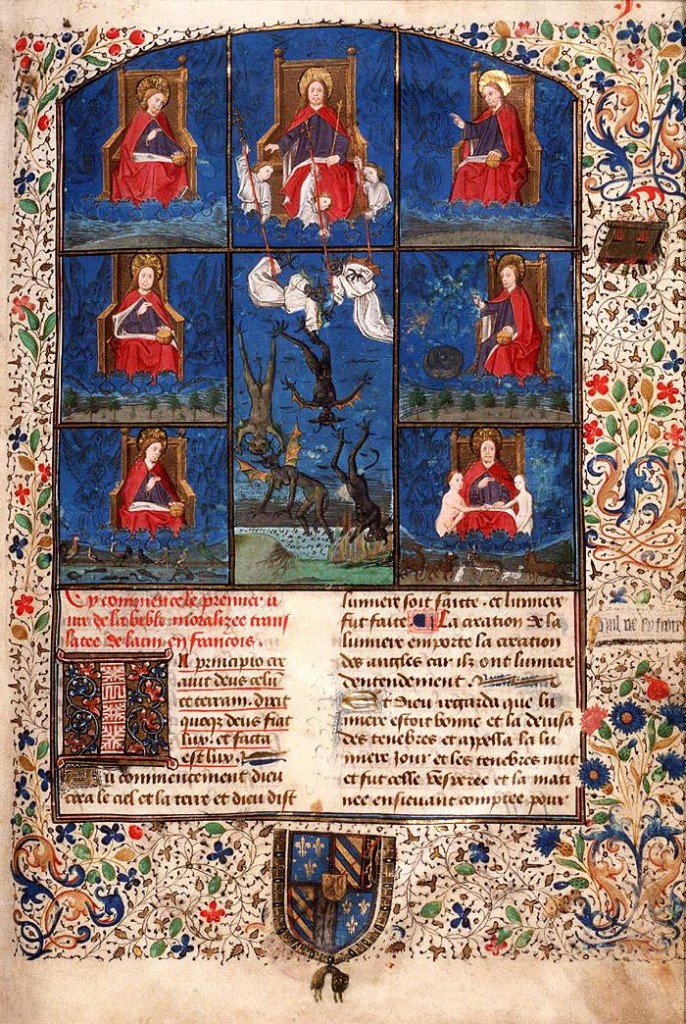 Cy commence le premier li
ure de la bible moralizee trans
latee de latin en francois.
In principio cre
auit deus celu
et terram. dixit
quoqz deus fiat
lux. et facta
est lux.
Au commencement dieu
crea le ciel et la terre et dieu dist
lumiere soit faitte. et lumiere
fut faite La creation de la
lumiere emporte la creation
des angles car ilz ont lumiere
dentendement.
Et Dieu regarda que lu
miere estoit bonne et la deuisa
des tenebres et appella la lu
miere Jour et les tenebres nuit
et fut celle vespree et la mati
nee ensieuant comptee pour